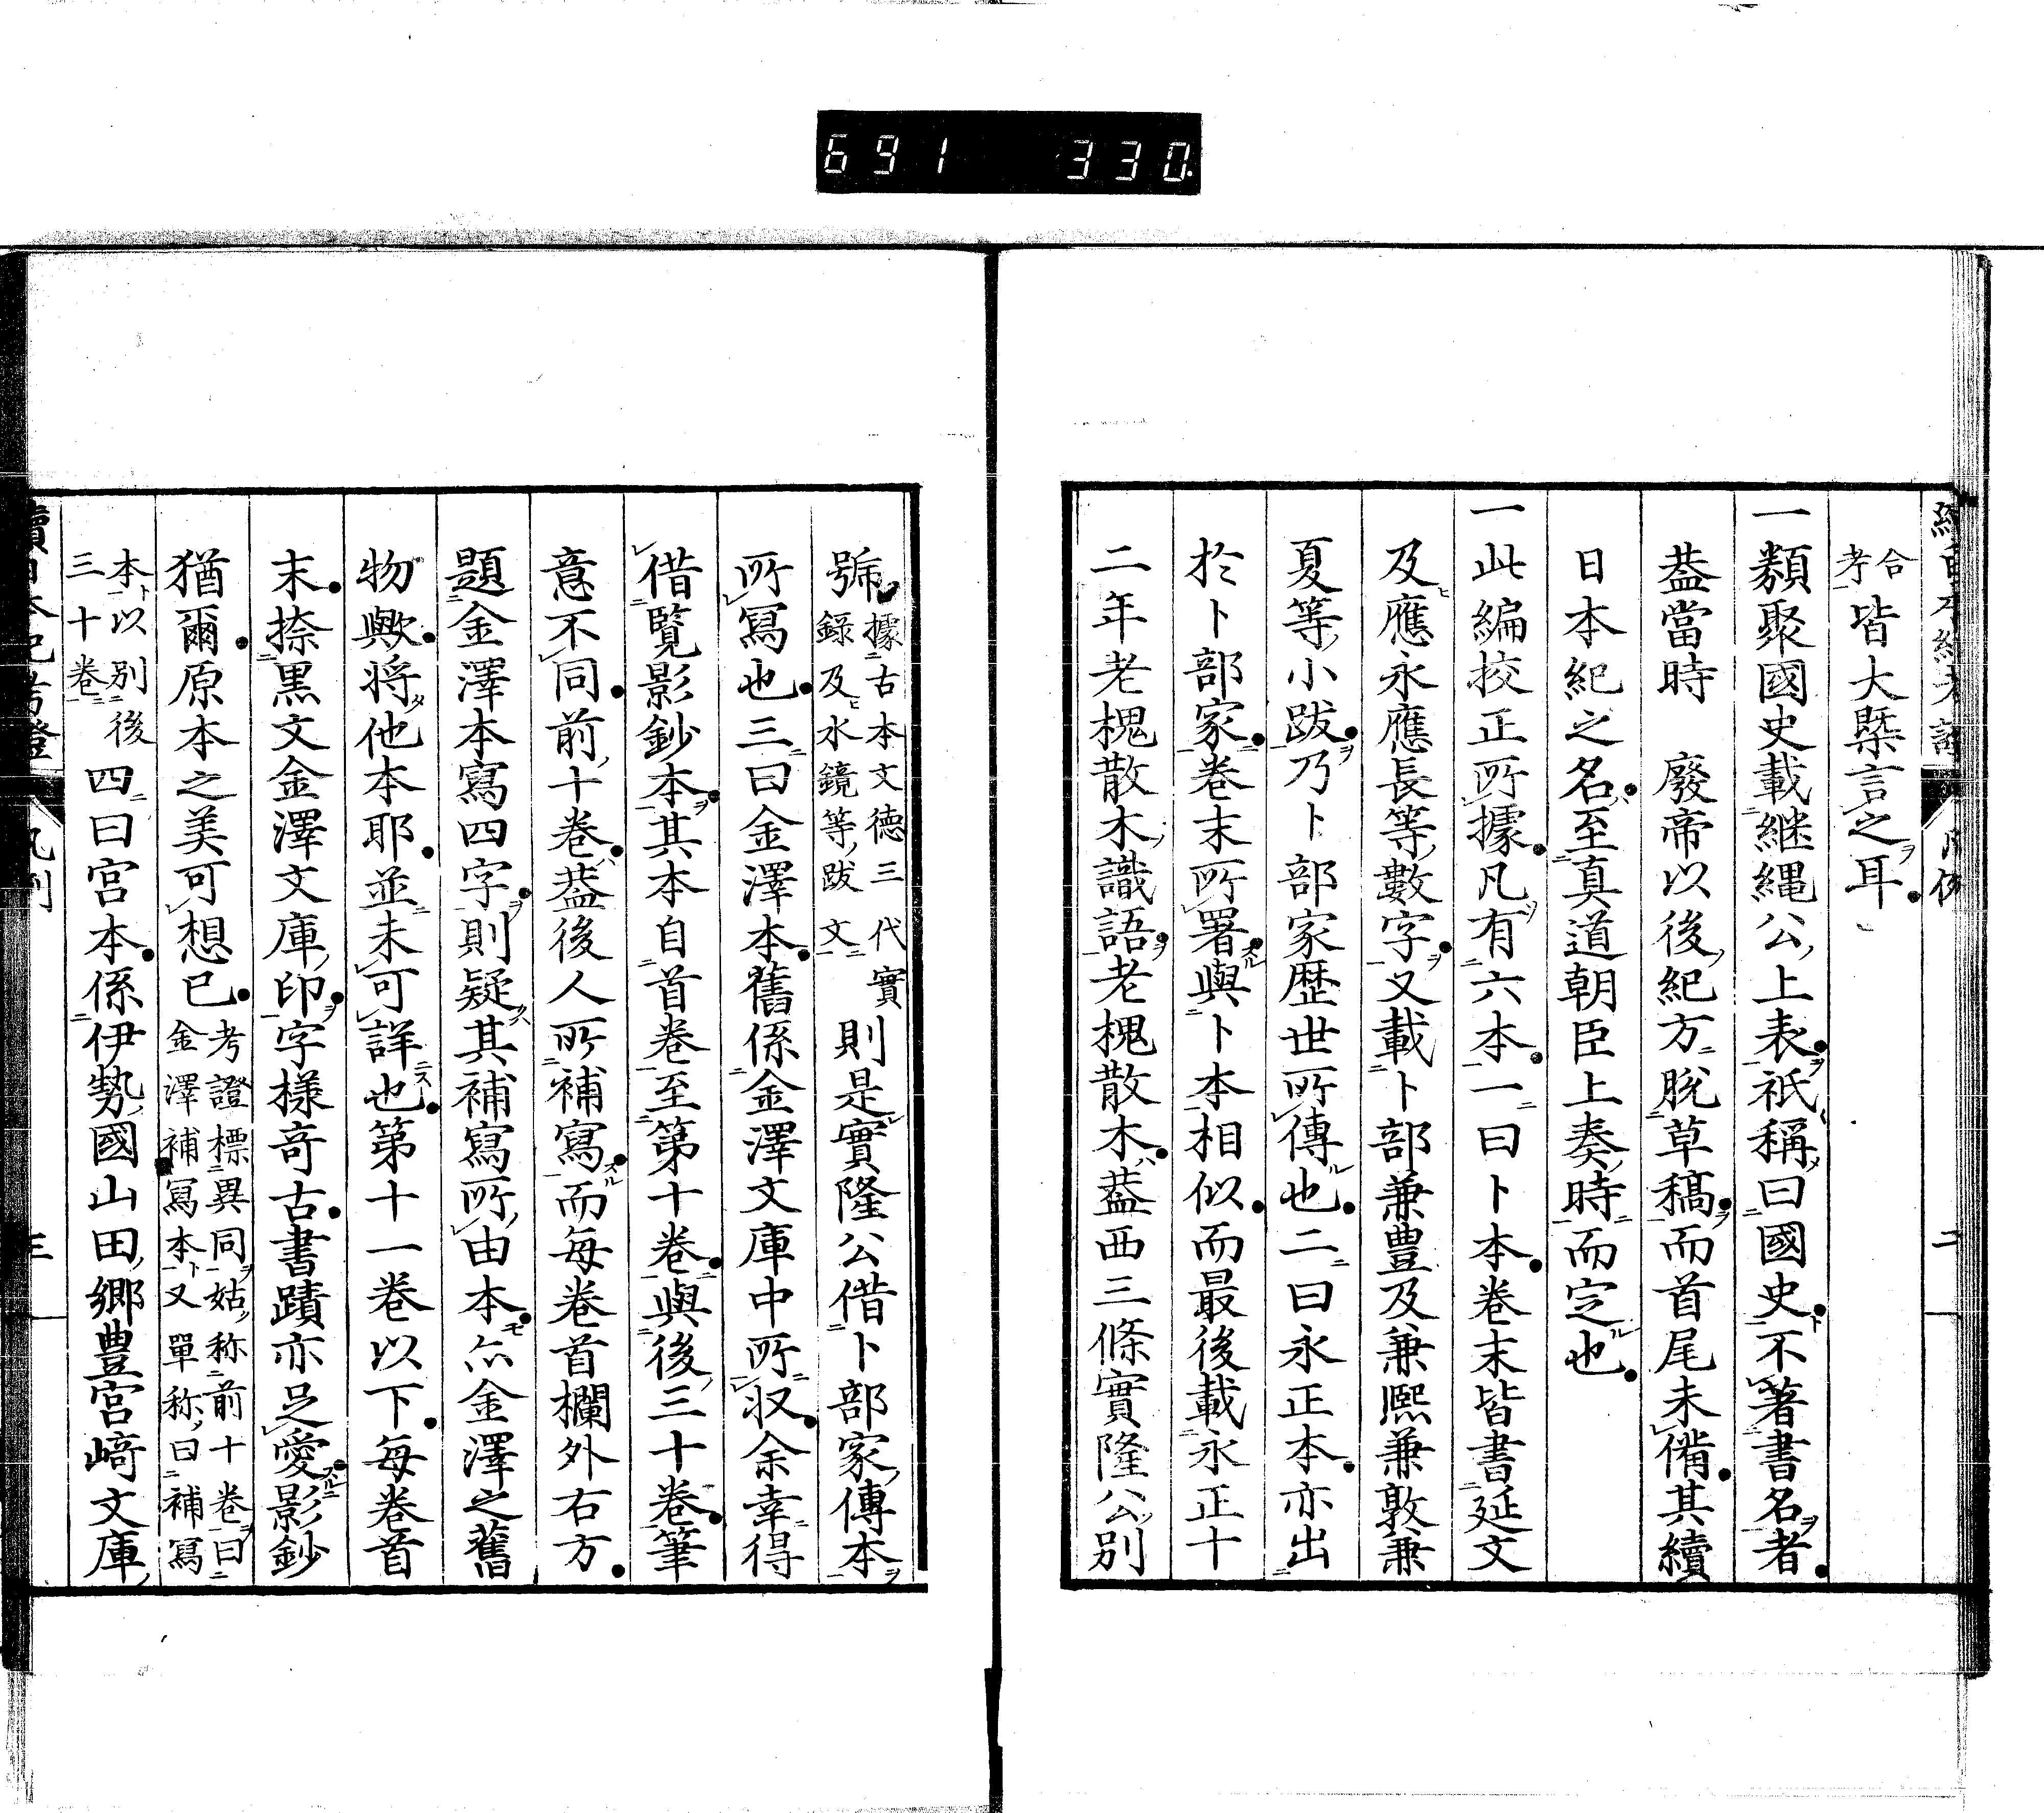 691 330.
合考皆大槩言之耳
一類聚國史載継縄公上表祇稱曰國史不著書名者
葢當時 廢帝以後紀方脱草稿而首尾未備其續
日本紀之名至真道朝臣上奏時而定也
一此編挍正所據凡有六本一曰卜本卷末皆書延文
及應永應長等數字又載卜部兼豊及兼熙兼敦兼
夏等小跋乃卜部家歴世所傳也二曰永正本亦出
於卜部家卷末所署與卜本相似而最後載永正十
二年老槐散木識語老槐散木葢西三條實隆公別
號據古本文德三代實錄及水鏡等跋文則是實隆公借卜部家傳本
所寫也三曰金澤本舊係金澤文庫中所収余幸得
借覽影鈔本其本自首卷至第十卷與後三十卷筆
意不同前十卷葢後人所補寫而每卷首欄外右方
題金澤本寫四字則疑其補寫所由本亦金澤之舊
物歟将他本耶並未可詳也第十一卷以下每卷首
末捺黒文金澤文庫印字様奇古書蹟亦足愛影鈔
猶爾原本之美可想已考證標異同姑称前十卷曰金澤補寫本又單称曰補寫
本以別後三十卷四曰宮本係伊勢國山田郷豊宮﨑文庫
續日本紀考證 凡例 三